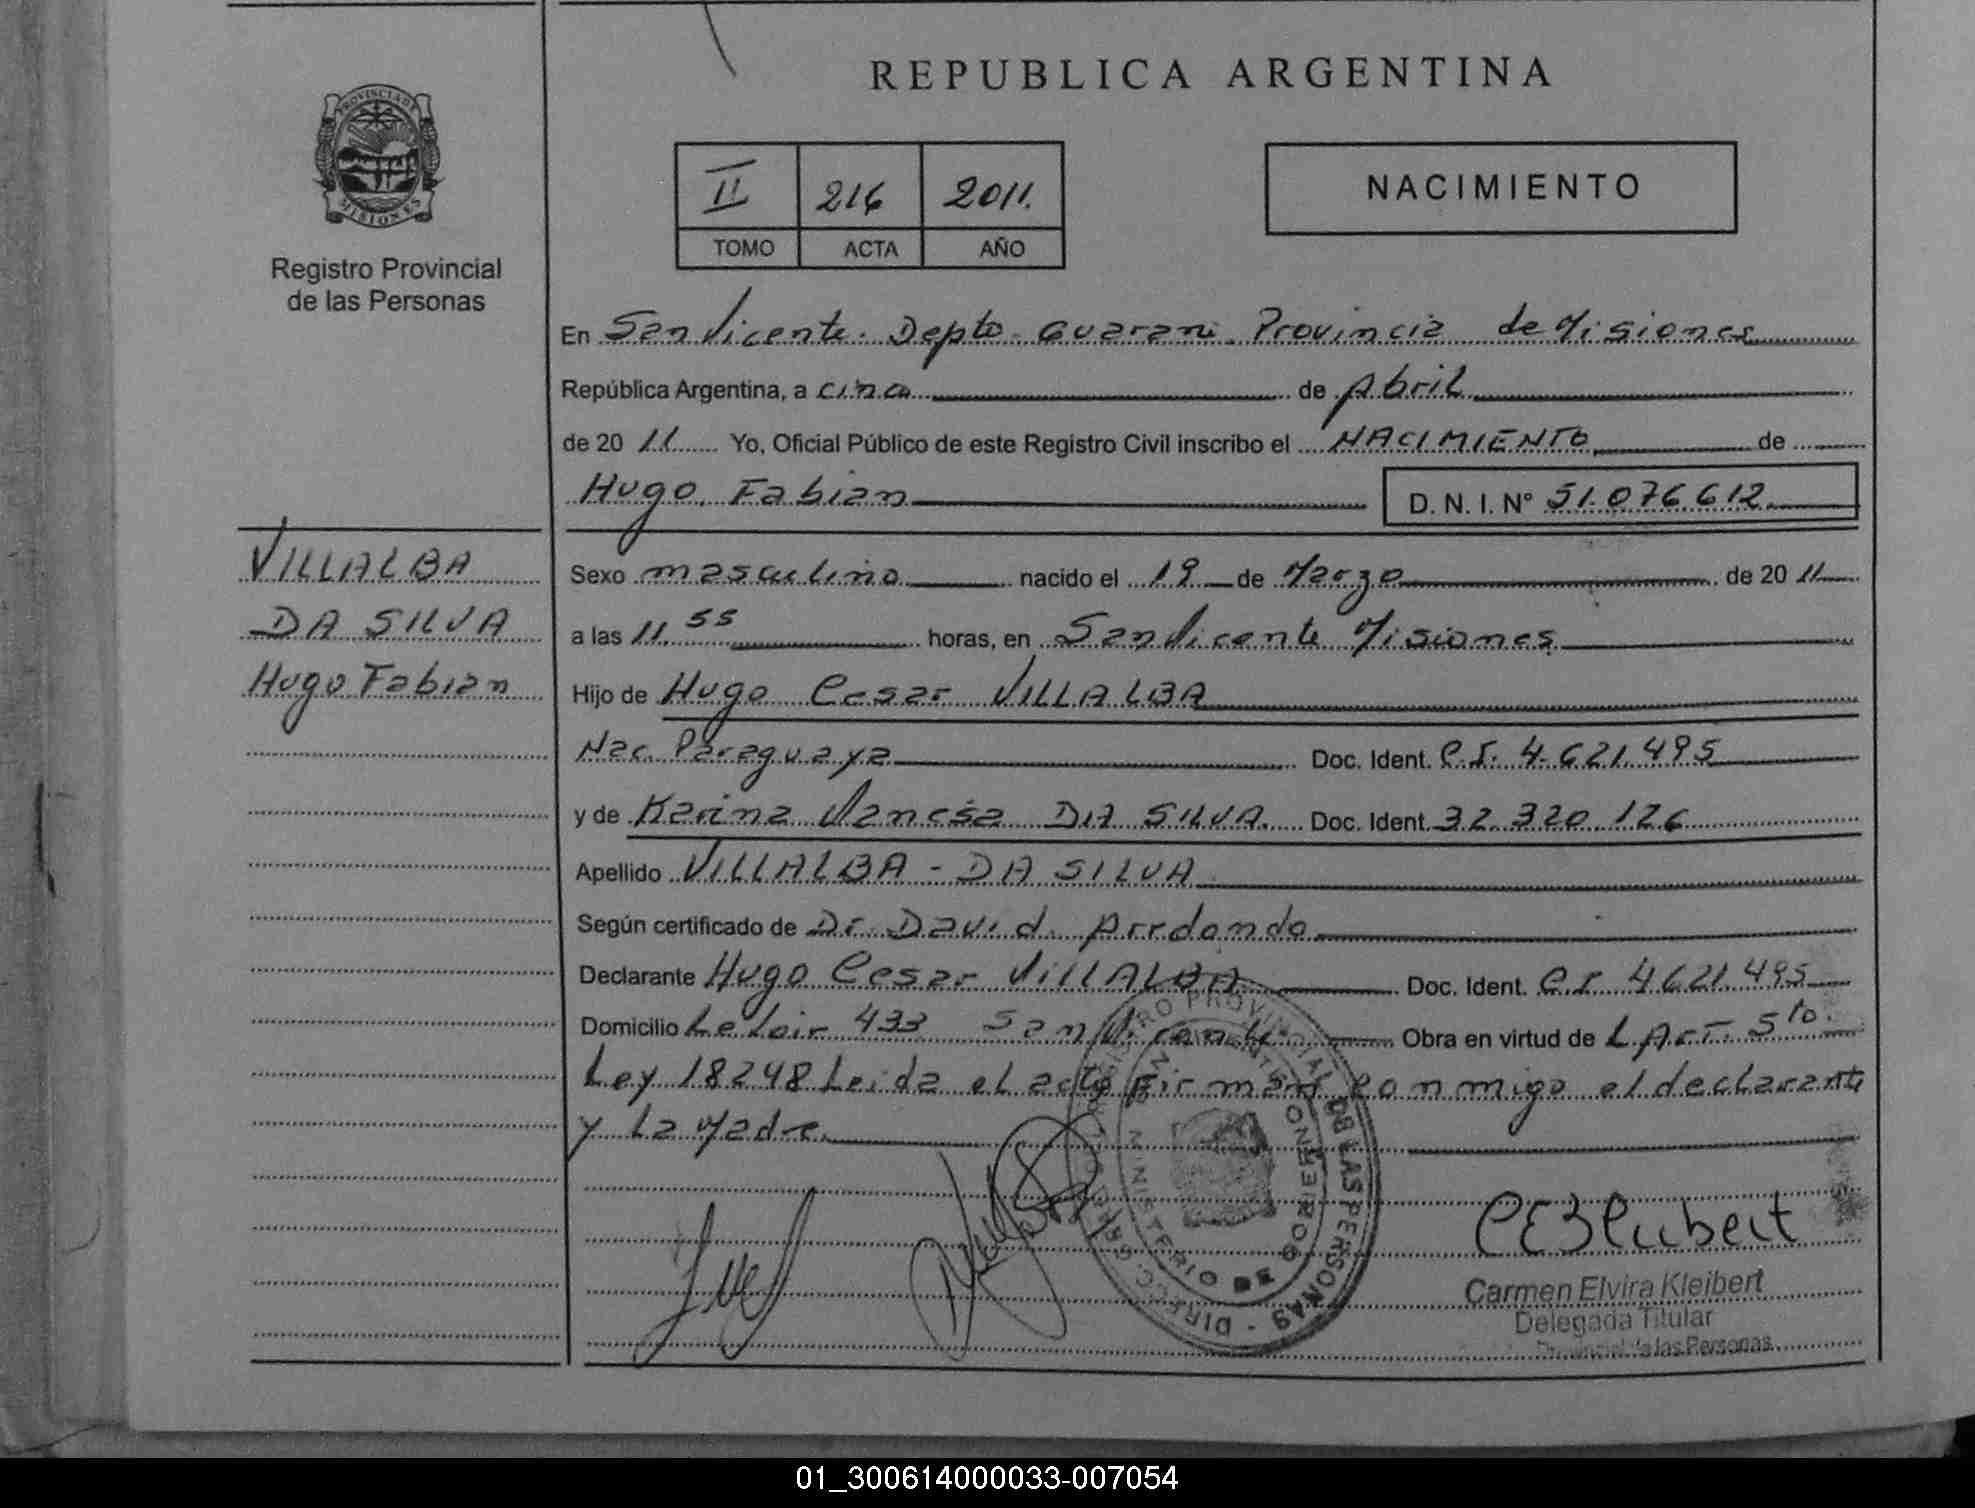 REPUBLICA ARGENTINA
PROVINCIA DE
MISIONES
Registro Provincial
de las Personas
II 216 2011.
TOMO ACTA AÑO
NACIMIENTO
En San Vicente. Depto. Guarani. Provincia de Misiones
República Argentina, a cinco de Abril
de 20 11 Yo, Oficial Público de este Registro Civil inscribo el NACIMIENTO de
Hugo Fabian D. N. I. N° 51.076.612.
VILLALBA
DA SILVA
Hugo Fabian
Sexo masculino nacido el 19 de Marzo de 20 11
a las 11.55 horas, en San Vicente Misiones
Hijo de Hugo Cesar VILLALBA
Nac. Paraguaya Doc. Ident. C.I. 4.621.495
y de Karina Vanesa DA SILVA. Doc. Ident. 32.320.126
Apellido VILLALBA - DA SILVA
Según certificado de Dr. David Arrdondo
Declarante Hugo Cesar VILLALBA Doc. Ident. CI 4621.495
Domicilio Leloir 433 San Vicente Obra en virtud de L. Art. 5to.
Ley 18248 Leida el acta firman conmigo el declarante
y la Madre.
REGISTRO PROVINCIAL DE LAS PERSONAS - DIRECC. GRAL.
MINISTERIO DE GOBIERNO
SAN VICENTE
Carmen Elvira Kleibert
Delegada Titular
Provincial de las Personas
01_300614000033-007054